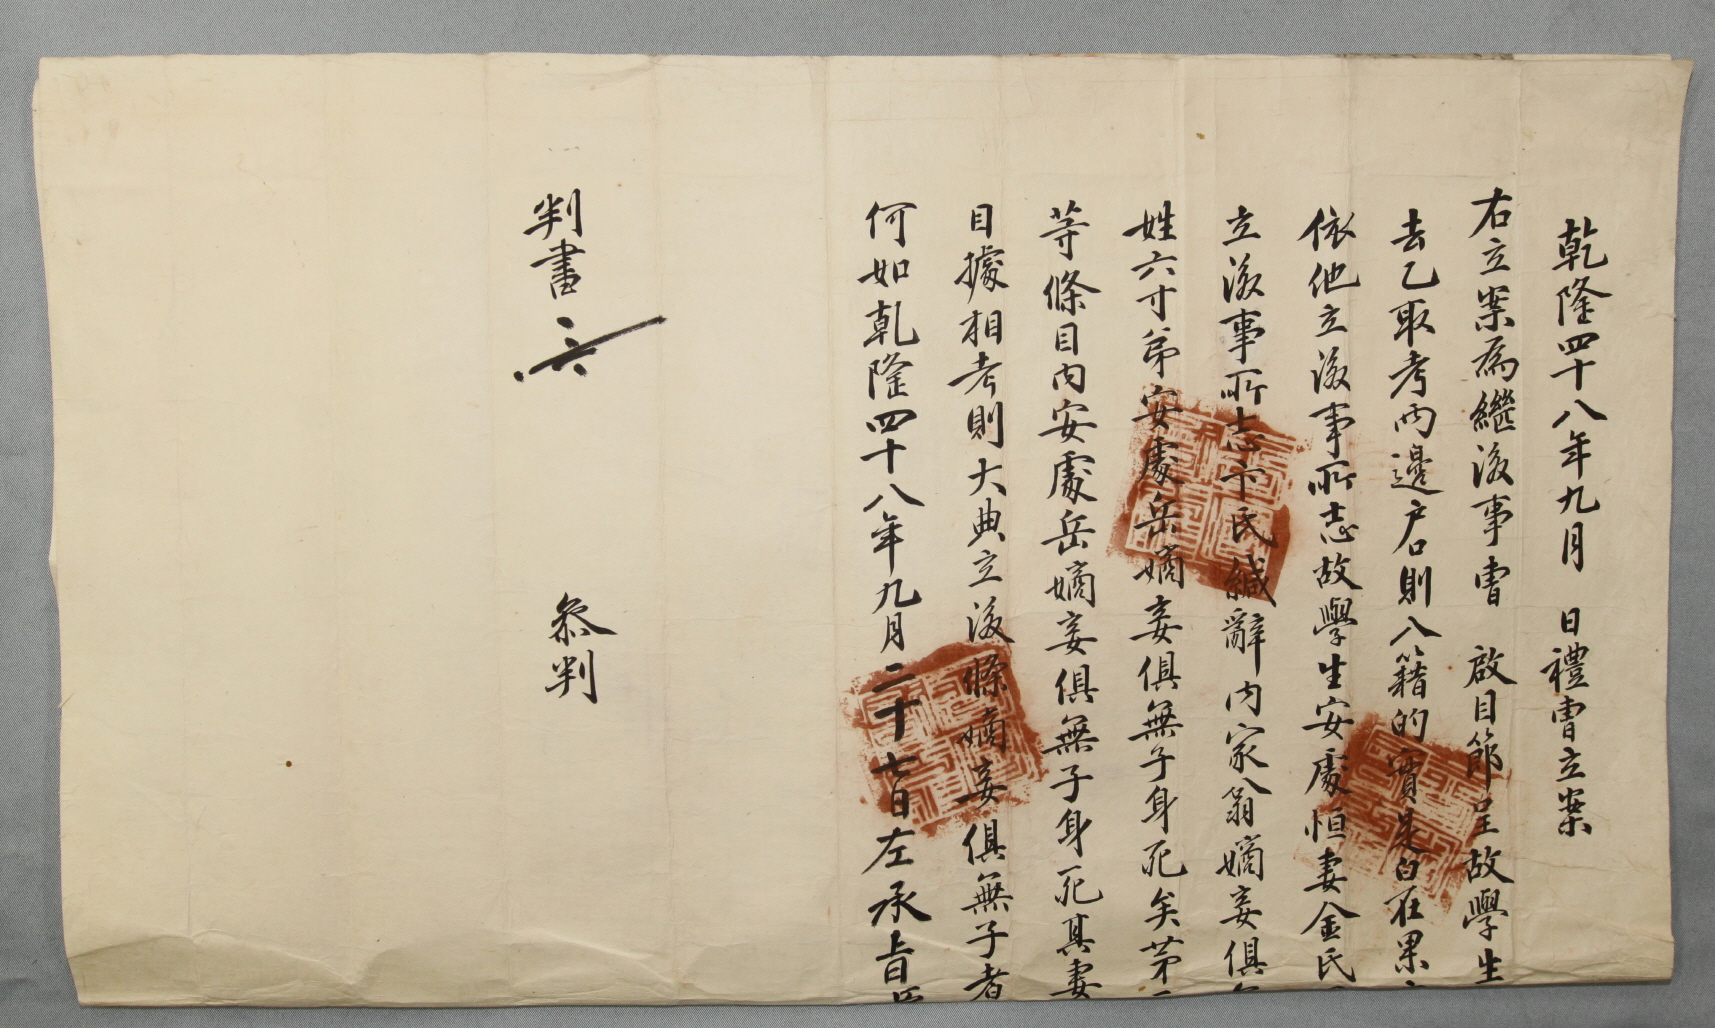 乾隆四十八年九月 日禮曹立案
右立案爲繼後事曹 啟目節呈故學生
去乙取考兩邊戶口則入籍的實是白在果
依他立後事所志故學生安處恒妻金氏
立後事所志卞氏緘辭內家翁嫡妾俱
姓六寸弟安處岳嫡妾俱無子身死矣第
等條目內安處岳嫡妾俱無子身死其妻
目據相考則大典立後條嫡妾俱無子者
何如乾隆四十八年九月二十七日左承旨臣
判書
參判